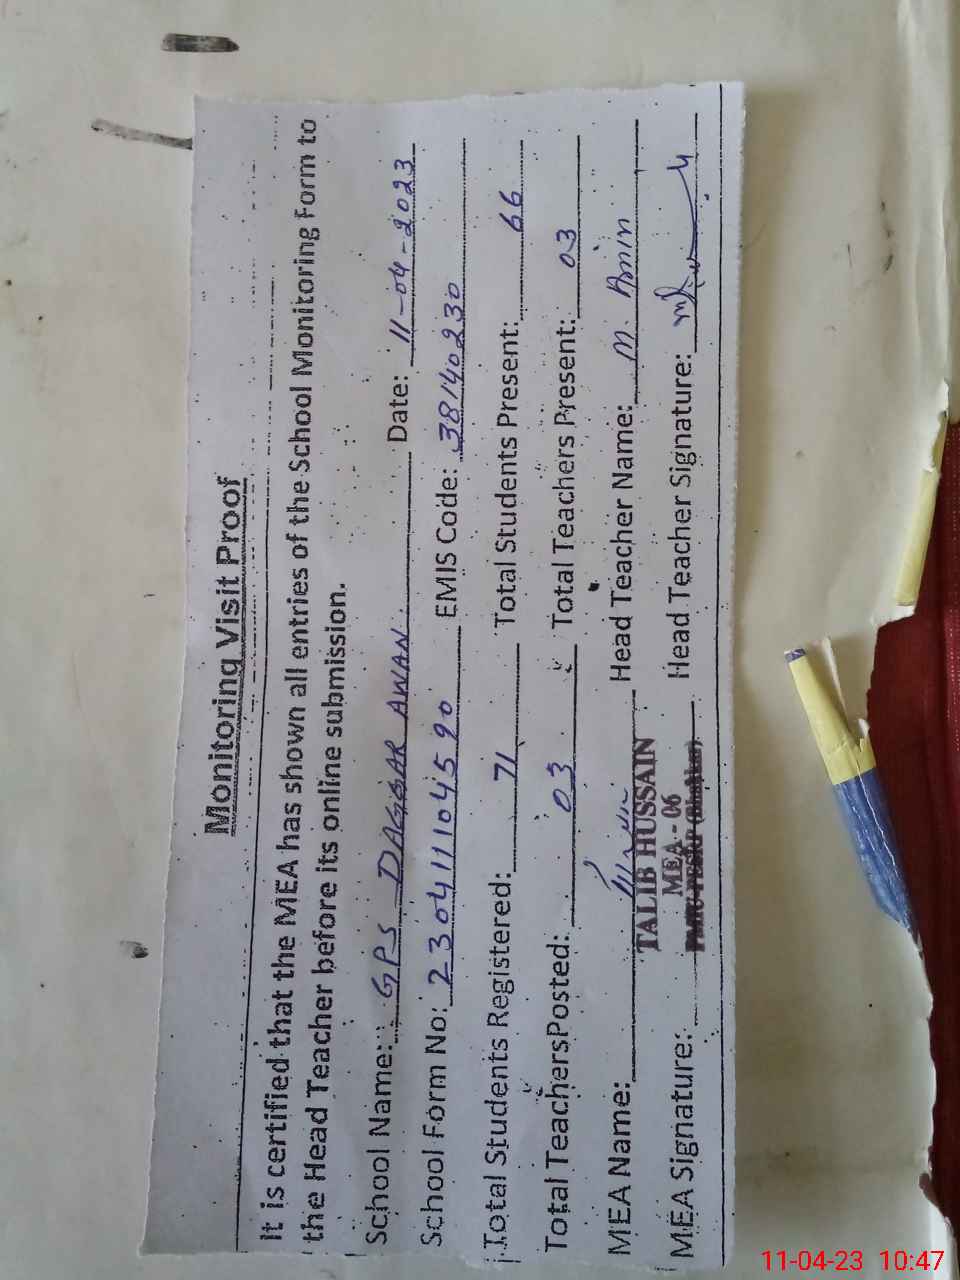 Monitoring Visit Proof
It is certified that the MEA has shown all entries of the School Monitoring Form to
the Head Teacher before its online submission.
School Name: GPS DAGGAR AWAN Date: 11-04-2023
School Form No: 230411104590 EMIS Code: 38140230
Total Students Registered: 71 Total Students Present: 66
Total TeachersPosted: 03 Total Teachers Present: 03
MEA Name: Head Teacher Name: M. Amin
TALIB HUSSAIN
MEA - 06
MEA Signature: Head Teacher Signature:
11-04-23 10:47